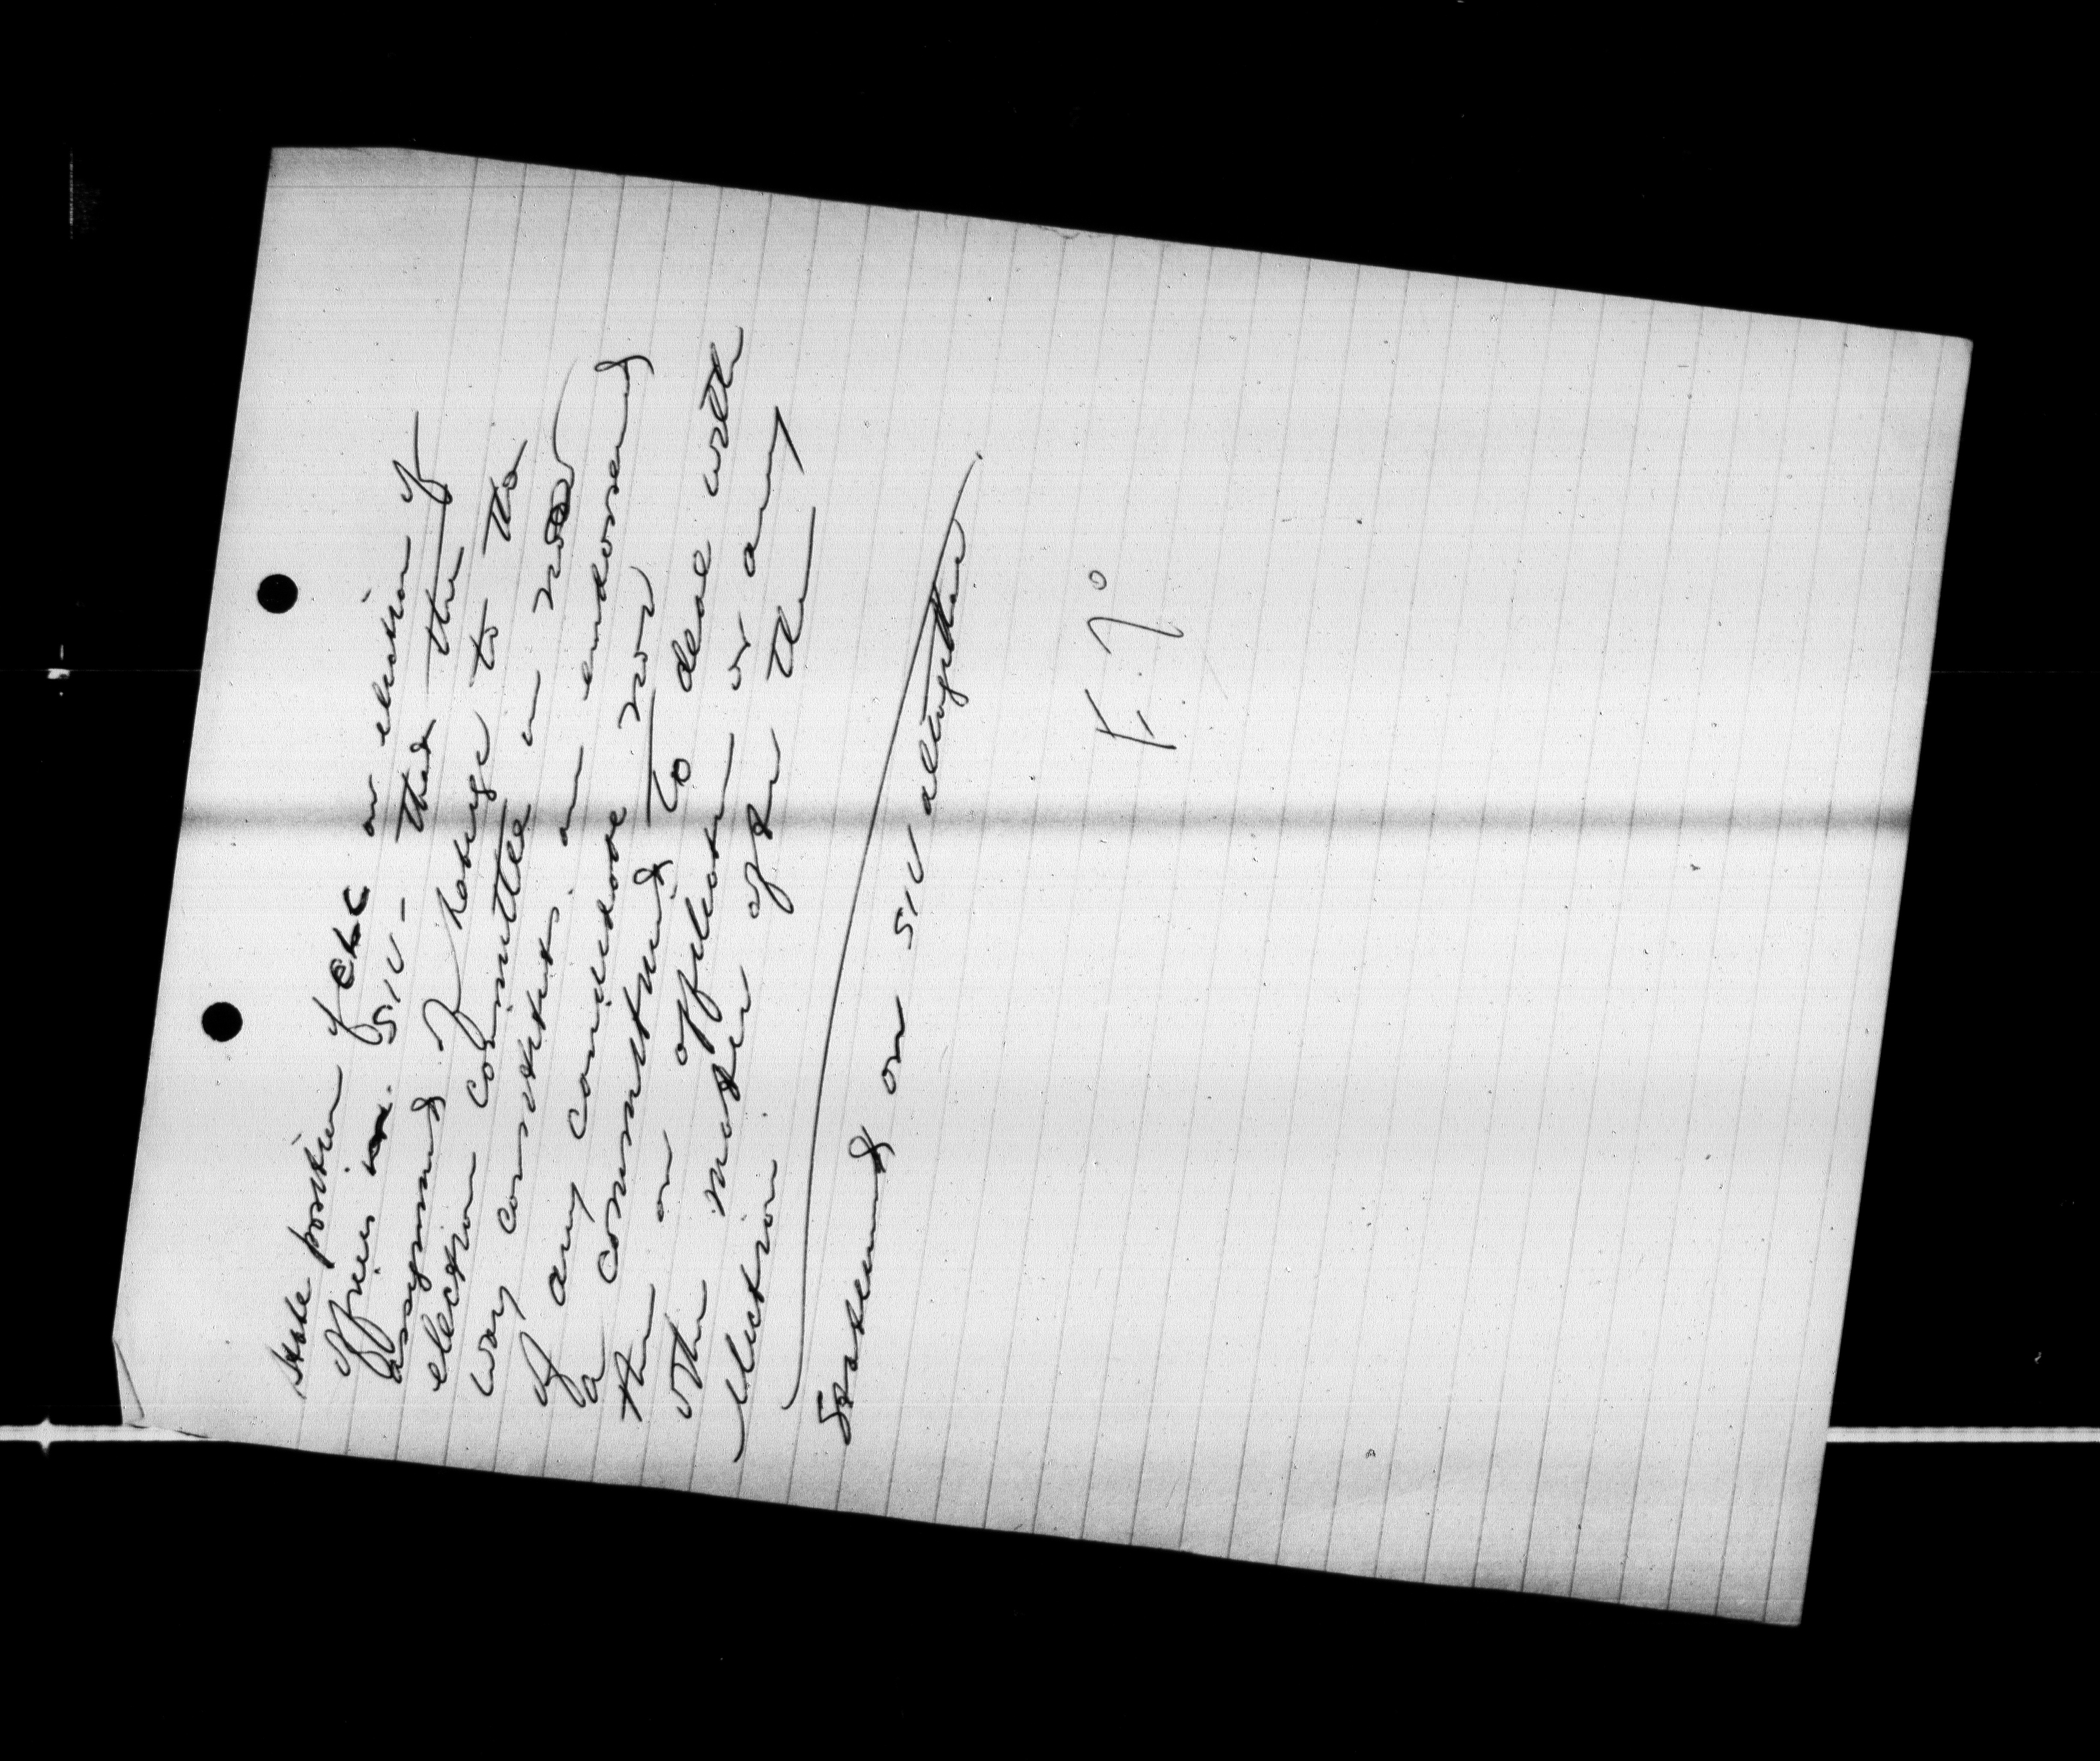 State position of CLC on election of
officers in SIU - that the
assignment of Kobrize to the
election committee in no
way constitutes an endorsement
of any candidate nor
a commitment to deal with
them on affiliation or any
other matter after the
election
Statement on SIU altogether